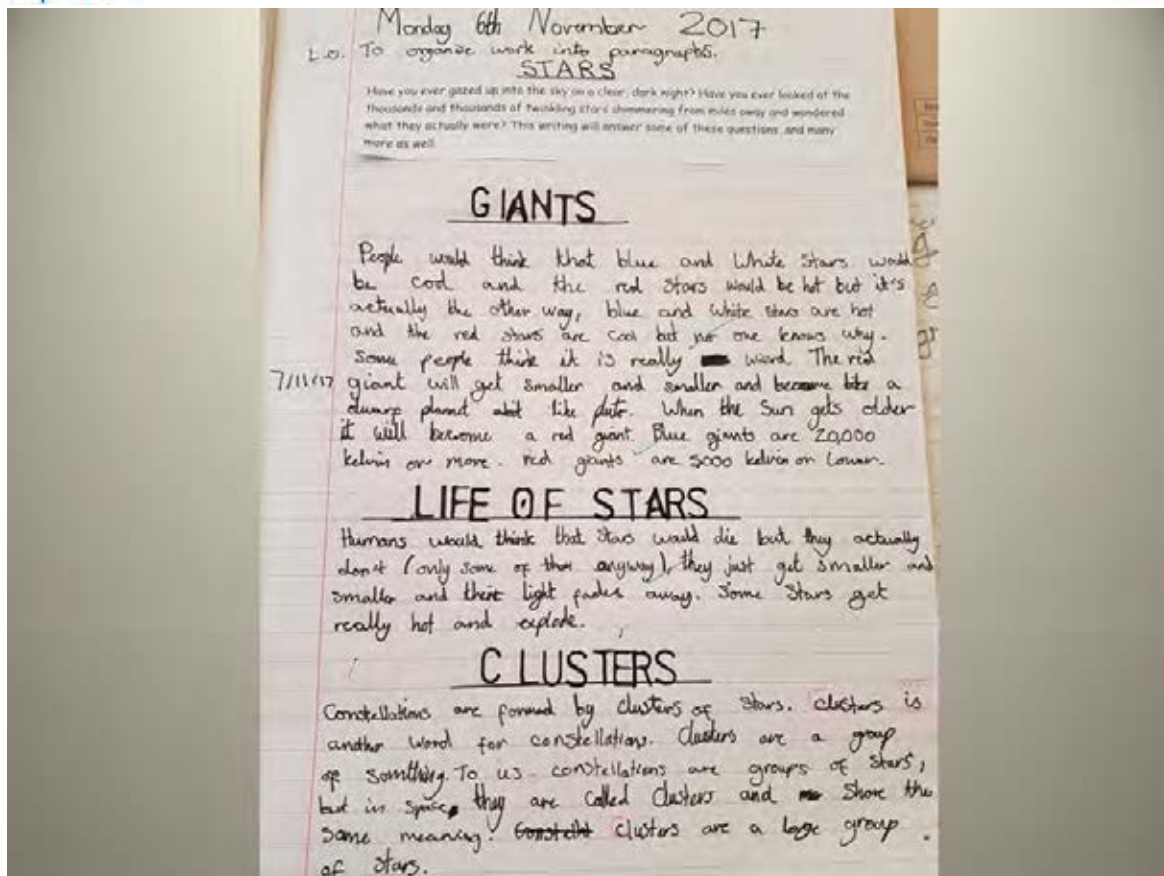 Monday 6th November 2017
L.O. To organise work into paragraphs.
STARS
Have you ever gazed up into the sky on a clear, dark night? Have you ever looked at the
thousands and thousands of twinkling stars shimmering from miles away and wondered
what they actually were? This writing will answer some of these questions, and many
more as well.
GIANTS
People would think that blue and White Stars would
be cool and the red Stars would be hot but it's
actually the other way, blue and white stars are hot
and the red stars are cool but no one knows why.
Some people think it is really wierd. The red
7/11/17 giant will get smaller and smaller and become like a
dwarf planet abit like pluto. When the Sun gets older
it will become a red giant. Blue giants are 20,000
kelvin or more. red giants are 5000 kelvin or lower.
LIFE OF STARS
Humans would think that Stars would die but they actually
don't (only some of them anyway), they just get smaller and
smaller and their light fades away. Some Stars get
really hot and explode.
CLUSTERS
Constellations are formed by clusters of stars. clusters is
another word for constellation. Clusters are a group
of something. To us constellations are groups of stars,
but in space, they are called clusters and share the
same meaning. clusters are a large group
of stars.